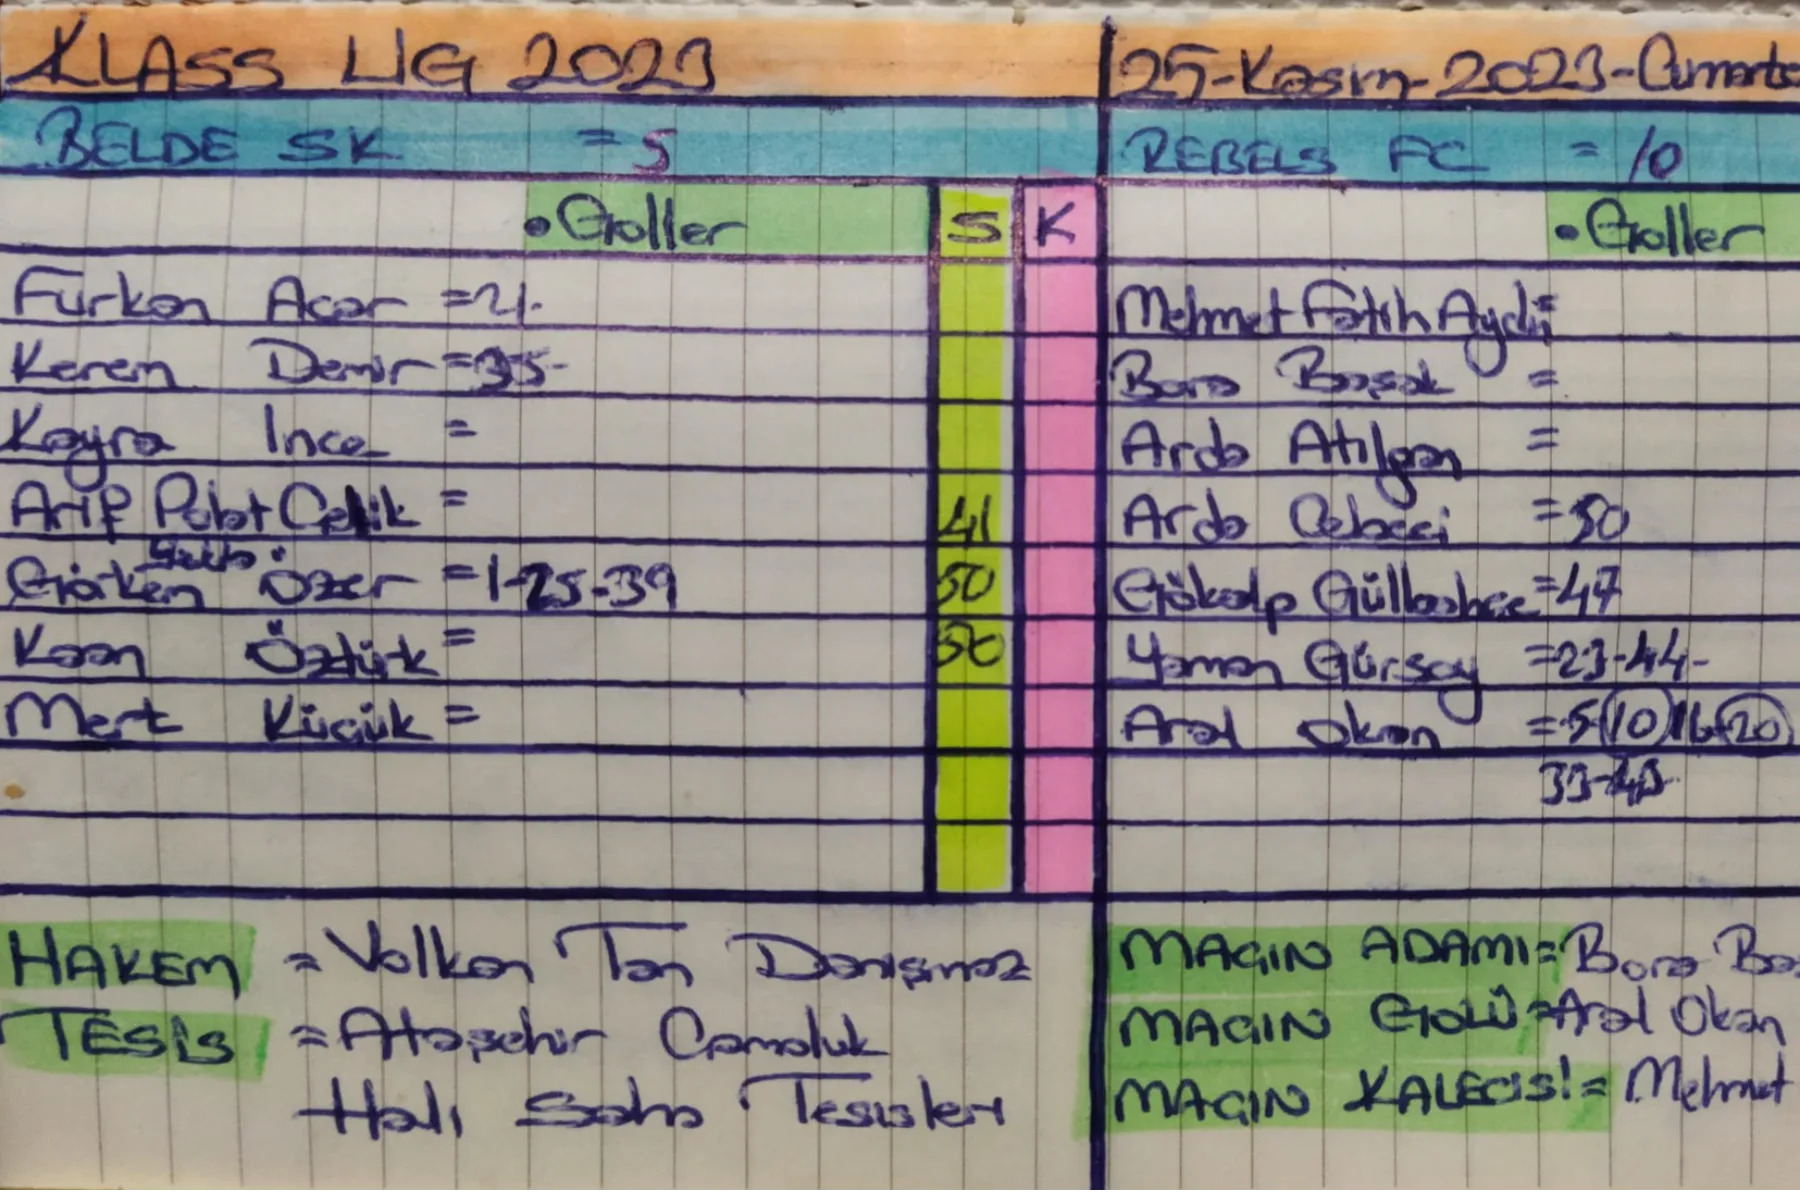 KLASS LİG 2023
25-Kasım-2023-Cumarte
BELDE SK = 5
REBELS FC = 10
•Goller S K
•Goller
Furkan Acar =21-
Mehmet Fatih Aydın=
Kerem Demir =35-
Bora Başak =
Kayra İnce =
Arda Atılgan =
Arif Polat Çelik = 41
Arda Cebeci =50
Görken Özer =1-25-39 50
Gökalp Gülbahçe=47
Kaan Öztürk = 50
Yaman Gürsoy =23-44-
Mert Küçük =
Aral Okan =5 10 16 20
33-43-
HAKEM = Volkan Tan Danışmaz
MAÇIN ADAMI= Bora Baş
TESİS = Ataşehir Çamoluk
MAÇIN GOLÜ=Aral Okan
Halı Saha Tesisleri
MAÇIN KALECİSİ= Mehmet